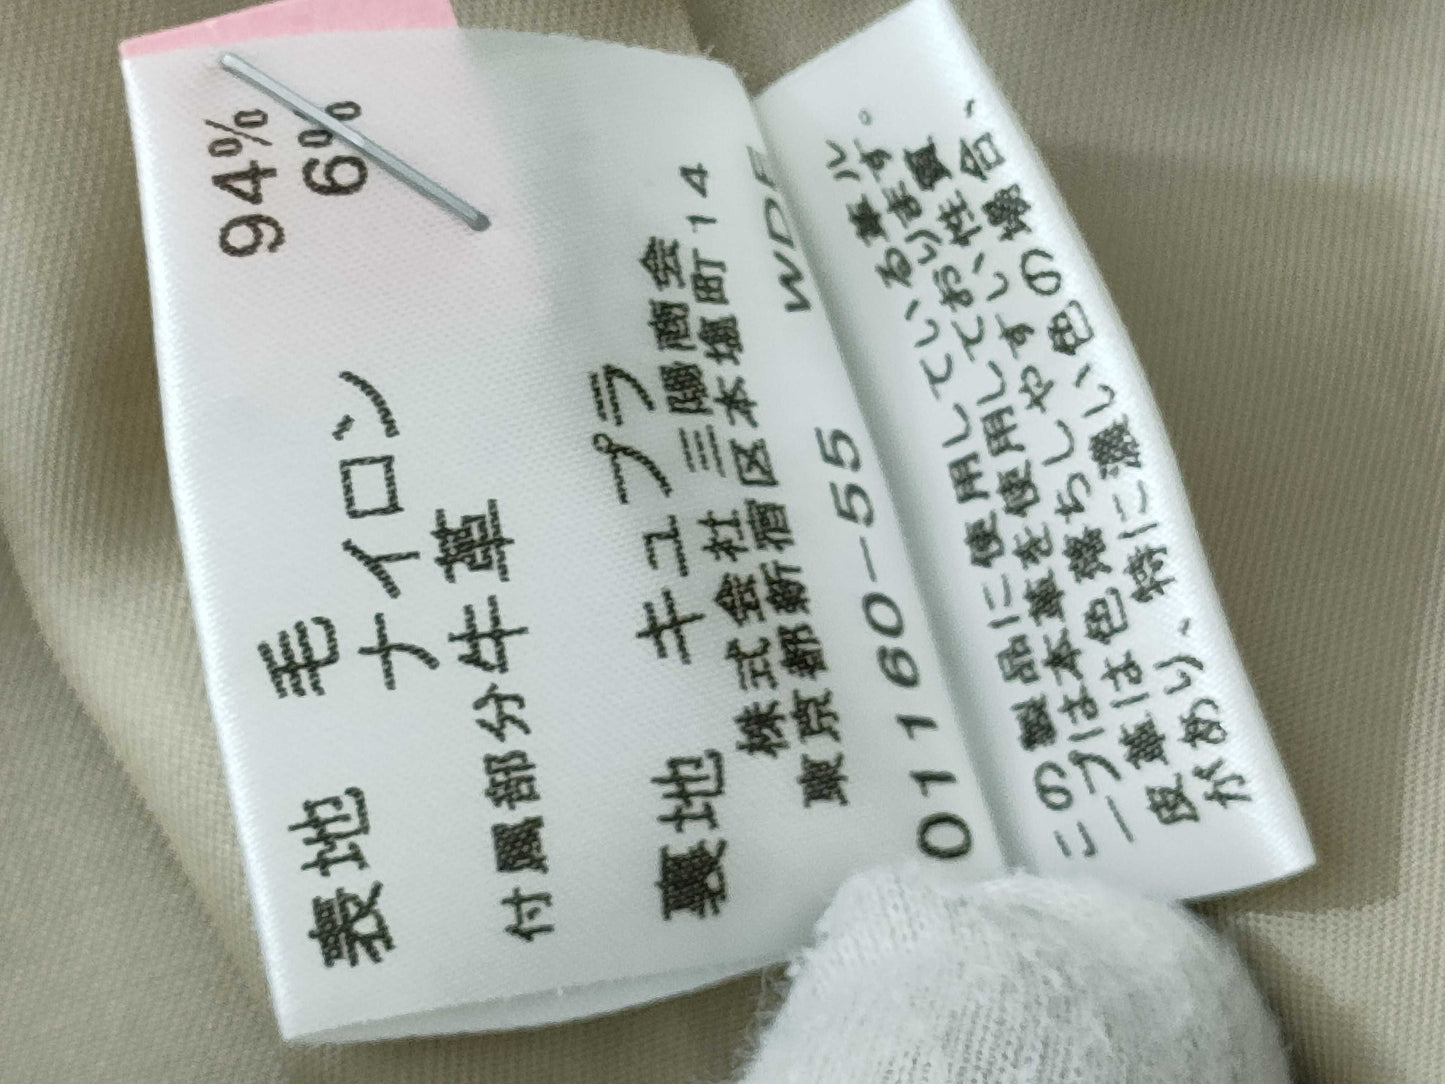 表地 毛 94%
ナイロン 6%
付属部分 牛革
裏地 キュプラ
株式会社 三陽商会
東京都新宿区本塩町14
01160-55
この製品に使用している革ル
ープは本革を使用しております。
皮革は色落ちしやすい性質
があり、特に濃い色の場合、